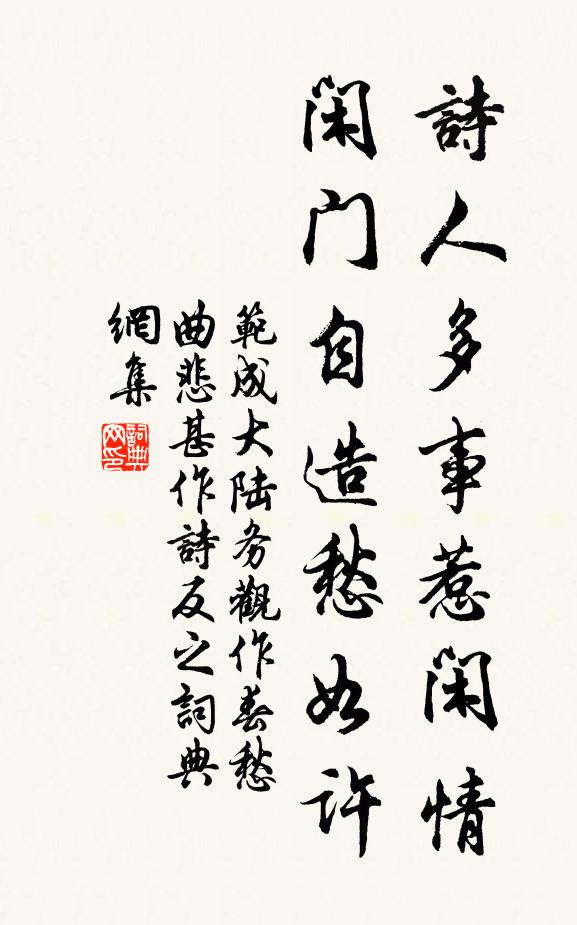 詩人多事惹閑情
閑门自造愁如許
範成大陆务觀作春愁
曲悲甚作詩反之詞典
網集
詞典
网印